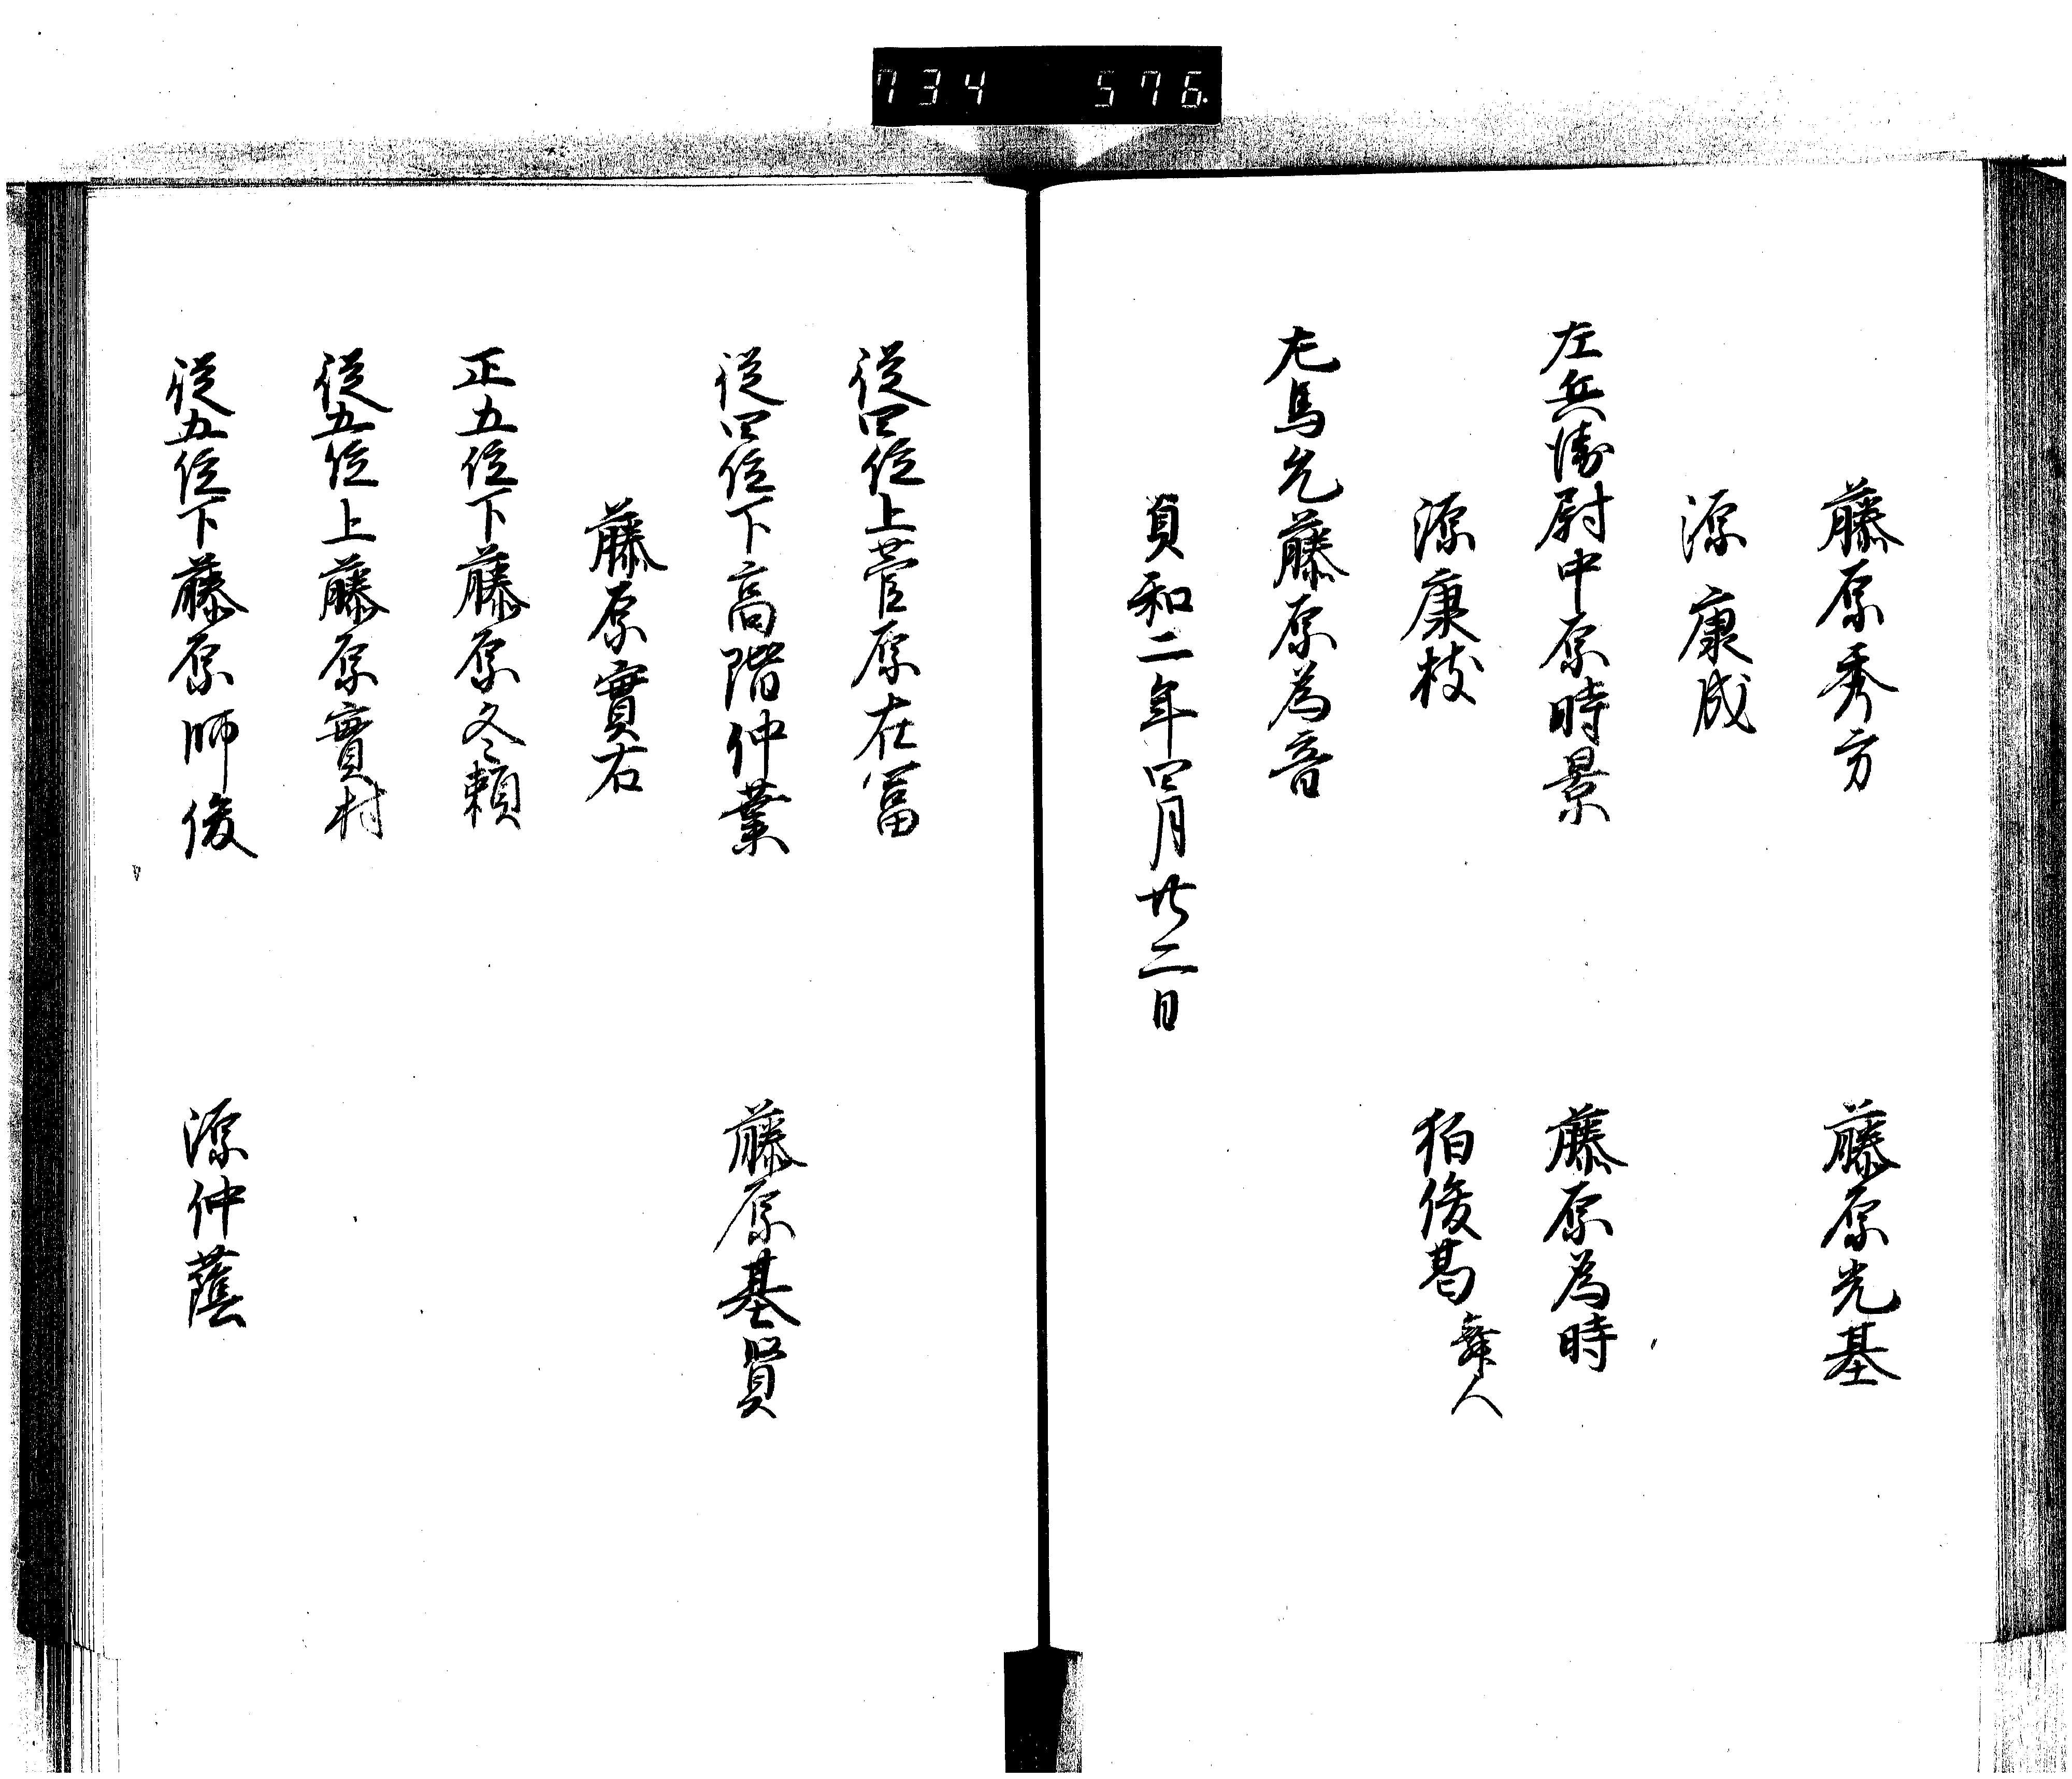 734 576
藤原秀方 藤原光基
源康成
左兵衛尉中原時景 藤原為時
源康枝 狛俊葛 舞人
左馬允藤原為音
貞和二年四月廿二日
従四位上菅原在冨
従四位下高階仲業 藤原基賢
藤原實右
正五位下藤原冬頼
従五位上藤原實村
従五位下藤原師俊 源仲蔭